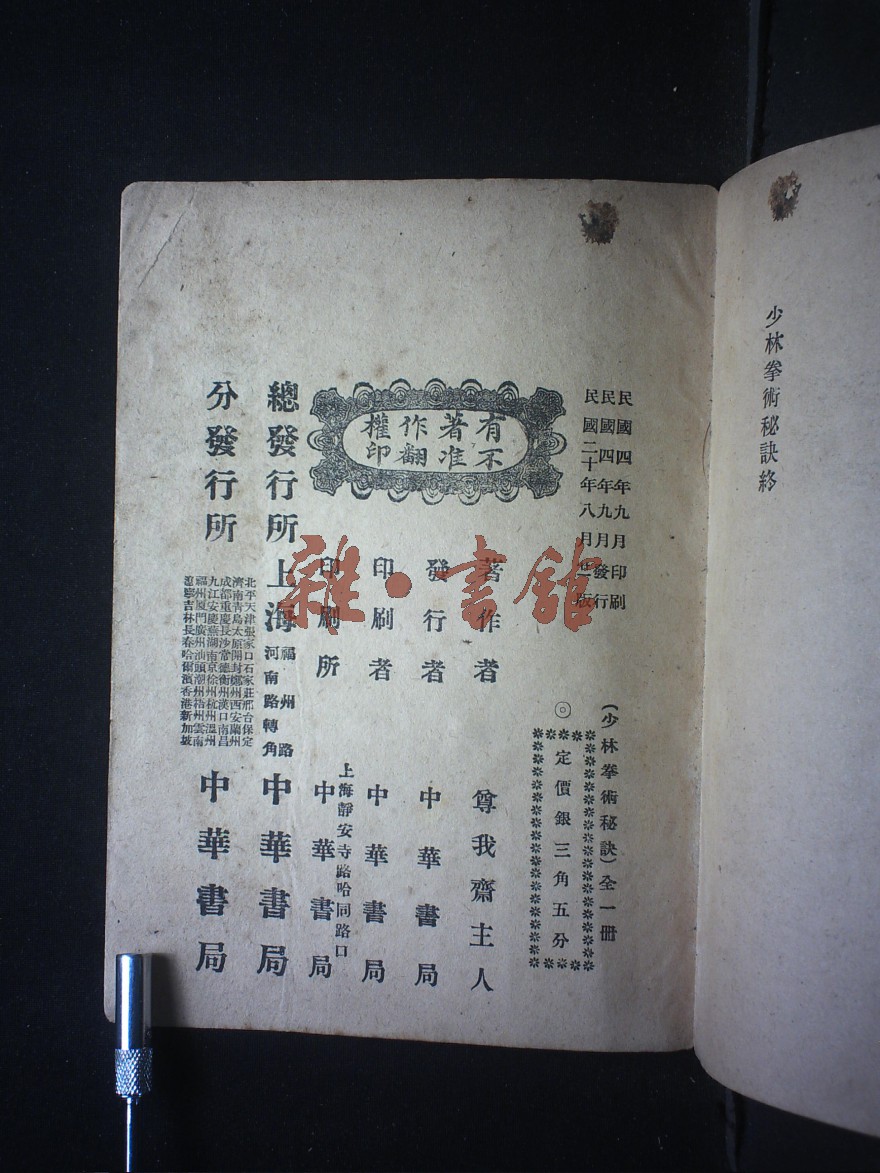 少林拳術秘訣終
民國四年九月印刷
民國四年九月發行
民國二十年八月版
(少林拳術秘訣)全一冊
◎定價銀三角五分
有著作權
不准翻印
著作者 尊我齋主人
發行者 中華書局
印刷者 中華書局
印刷所 上海靜安寺路哈同路口 中華書局
總發行所 上海 福州路河南路轉角 中華書局
分發行所
北平天津張家口石家莊邢台保定
濟南青島太原開封鄭州西安蘭州
成都重慶長沙常德衡州漢口南昌
九江安慶蕪湖南京徐州杭州溫州
福州廈門廣州汕頭潮州梧州雲南
遼寧吉林長春哈爾濱香港新加坡
中華書局
雜·書館